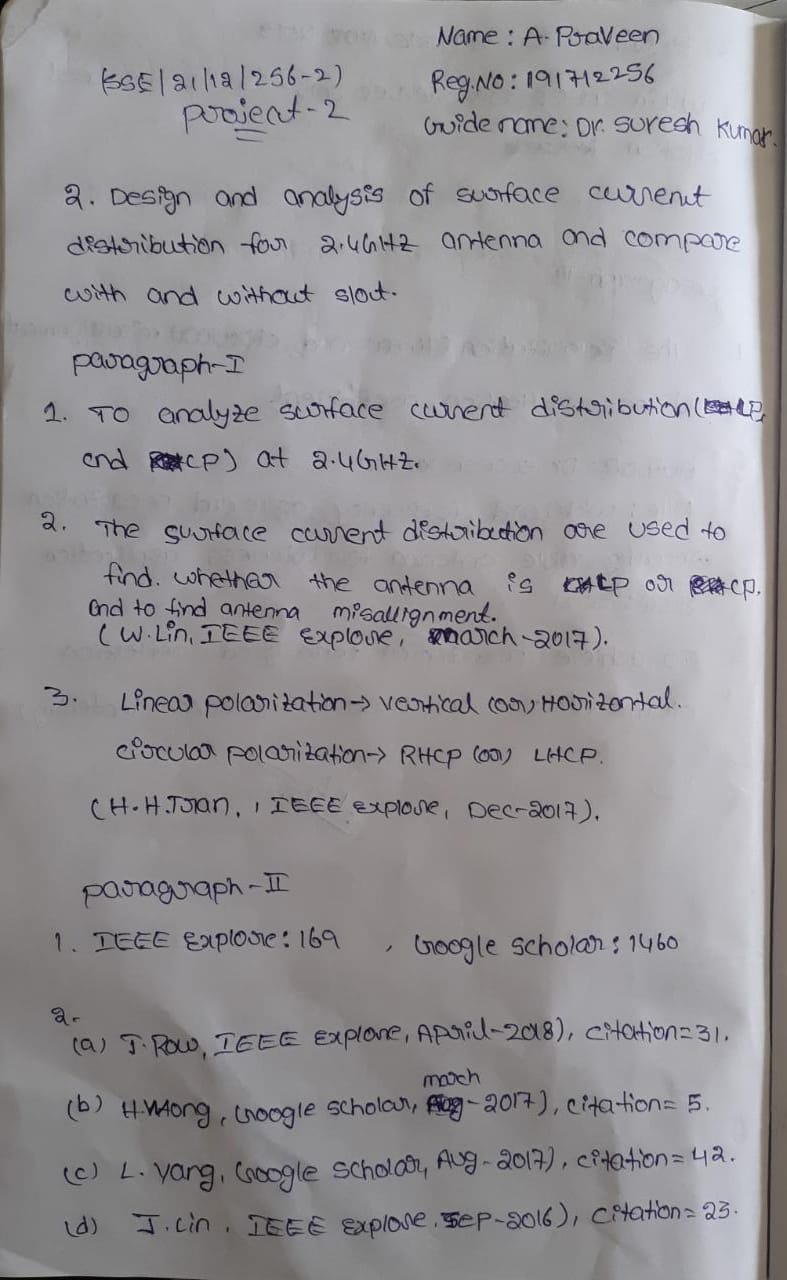 Name : A. Praveen
(SSE/21/12/256-2)
Reg.No : 191712256
project-2
Guide name: Dr. Suresh Kumar.
2. Design and analysis of surface current
distribution for 2.4GHZ antenna and compare
with and without slot.
paragraph-I
1. TO analyze surface current distribution (LP
and CP) at 2.4GHZ.
2. The surface current distribution are used to
find. whether the antenna is LP or CP.
and to find antenna misallignment.
(W.Lin, IEEE Explore, march-2017).
3. Linear polarization→ vertical (or) Horizontal.
circular polarization→ RHCP (or) LHCP.
(H.H.Tran, , IEEE Explore, Dec-2017).
paragraph-II
1. IEEE Explore: 169 , Google scholar: 1460
2.
(a) J. Row, IEEE Explore, April-2018), citation=31.
(b) H.Wong, Google scholar, march-2017), citation= 5.
(c) L. Yang, Google scholar, Aug-2017), citation=42.
(d) J.Lin, IEEE Explore, Sep-2016), citation= 23.